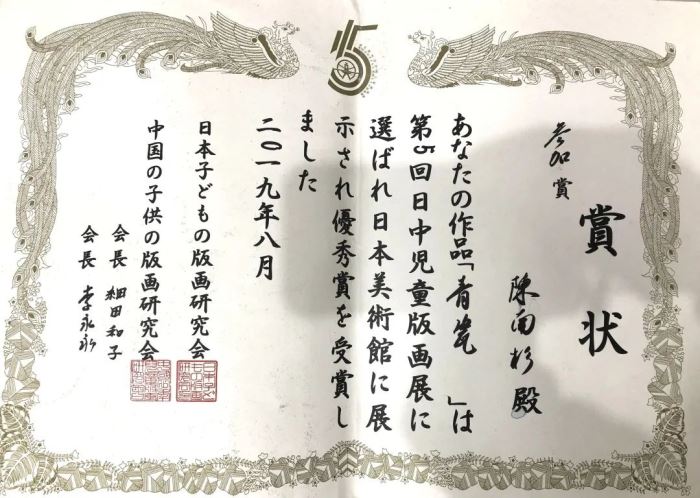 賞状
参加賞
陳雨杉 殿
あなたの作品「青瓷　」は
第5回日中児童版画展に
選ばれ日本美術館に展
示され優秀賞を受賞し
ました
二〇一九年八月
日本子どもの版画研究会
中国の子供の版画研究会
会長 細田和子
会長 李永永
5